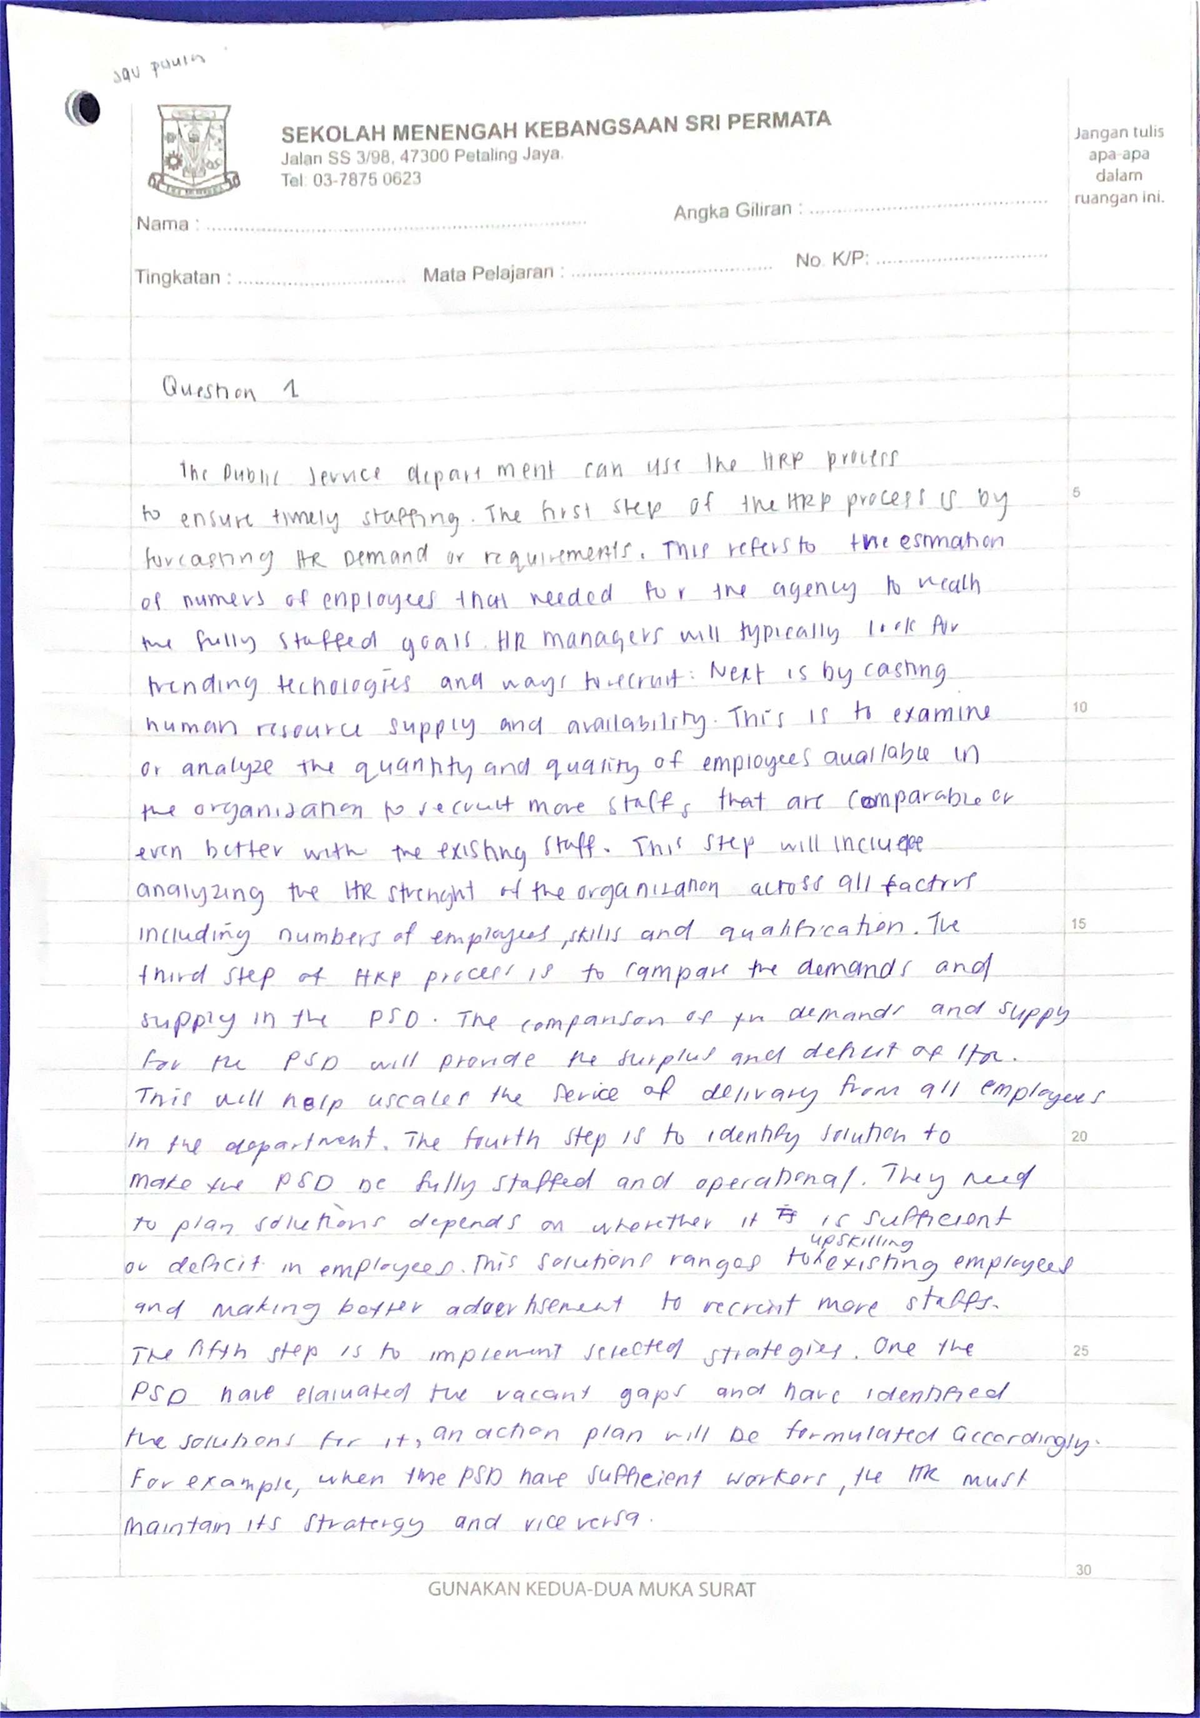 SEKOLAH MENENGAH KEBANGSAAN SRI PERMATA
Jalan SS 3/98, 47300 Petaling Jaya.
Tel: 03-7875 0623
Jangan tulis
apa-apa
dalam
ruangan ini.
Nama :
Angka Giliran :
Tingkatan :
Mata Pelajaran :
No. K/P:
Question 1
The Public Service department can use the HRP process
to ensure timely staffing. The first step of the HRP process is by
5
forcasting HR Demand or requirements. This refers to the esmation
of numers of enployees that needed for the agency to reach
the fully staffed goals. HR managers will typically look for
trending technologies and ways to recruit. Next is by casting
human resource supply and availability. This is to examine
10
or analyze the quantity and quality of employees available in
the organization to recruit more staffs that are comparable or
even better with the existing staff. This step will include
analyzing the HR strenght of the organization across all factors
including numbers of employees, skills and qualification. The
15
third step of HRP process is to compare the demands and
supply in the PSD. The comparison of the demands and supply
for the PSD will provide the surplus and deficit of HR.
This will help uscales the service of delivary from all employees
in the department. The fourth step is to identify solution to
20
make the PSD be fully staffed and operational. They need
to plan solutions depends on wherether it is sufficient
upskilling
or deficit in employees. This solutions ranges existing employees
and making better advertisement to recruit more staffs.
The fifth step is to implement selected strategies. One the
25
PSD have elaluated the vacant gaps and have identified
the solutions for it, an action plan will be formulated accordingly.
For example, when the PSD have sufficient workers, the HR must
maintain its stratergy and vice versa.
30
GUNAKAN KEDUA-DUA MUKA SURAT